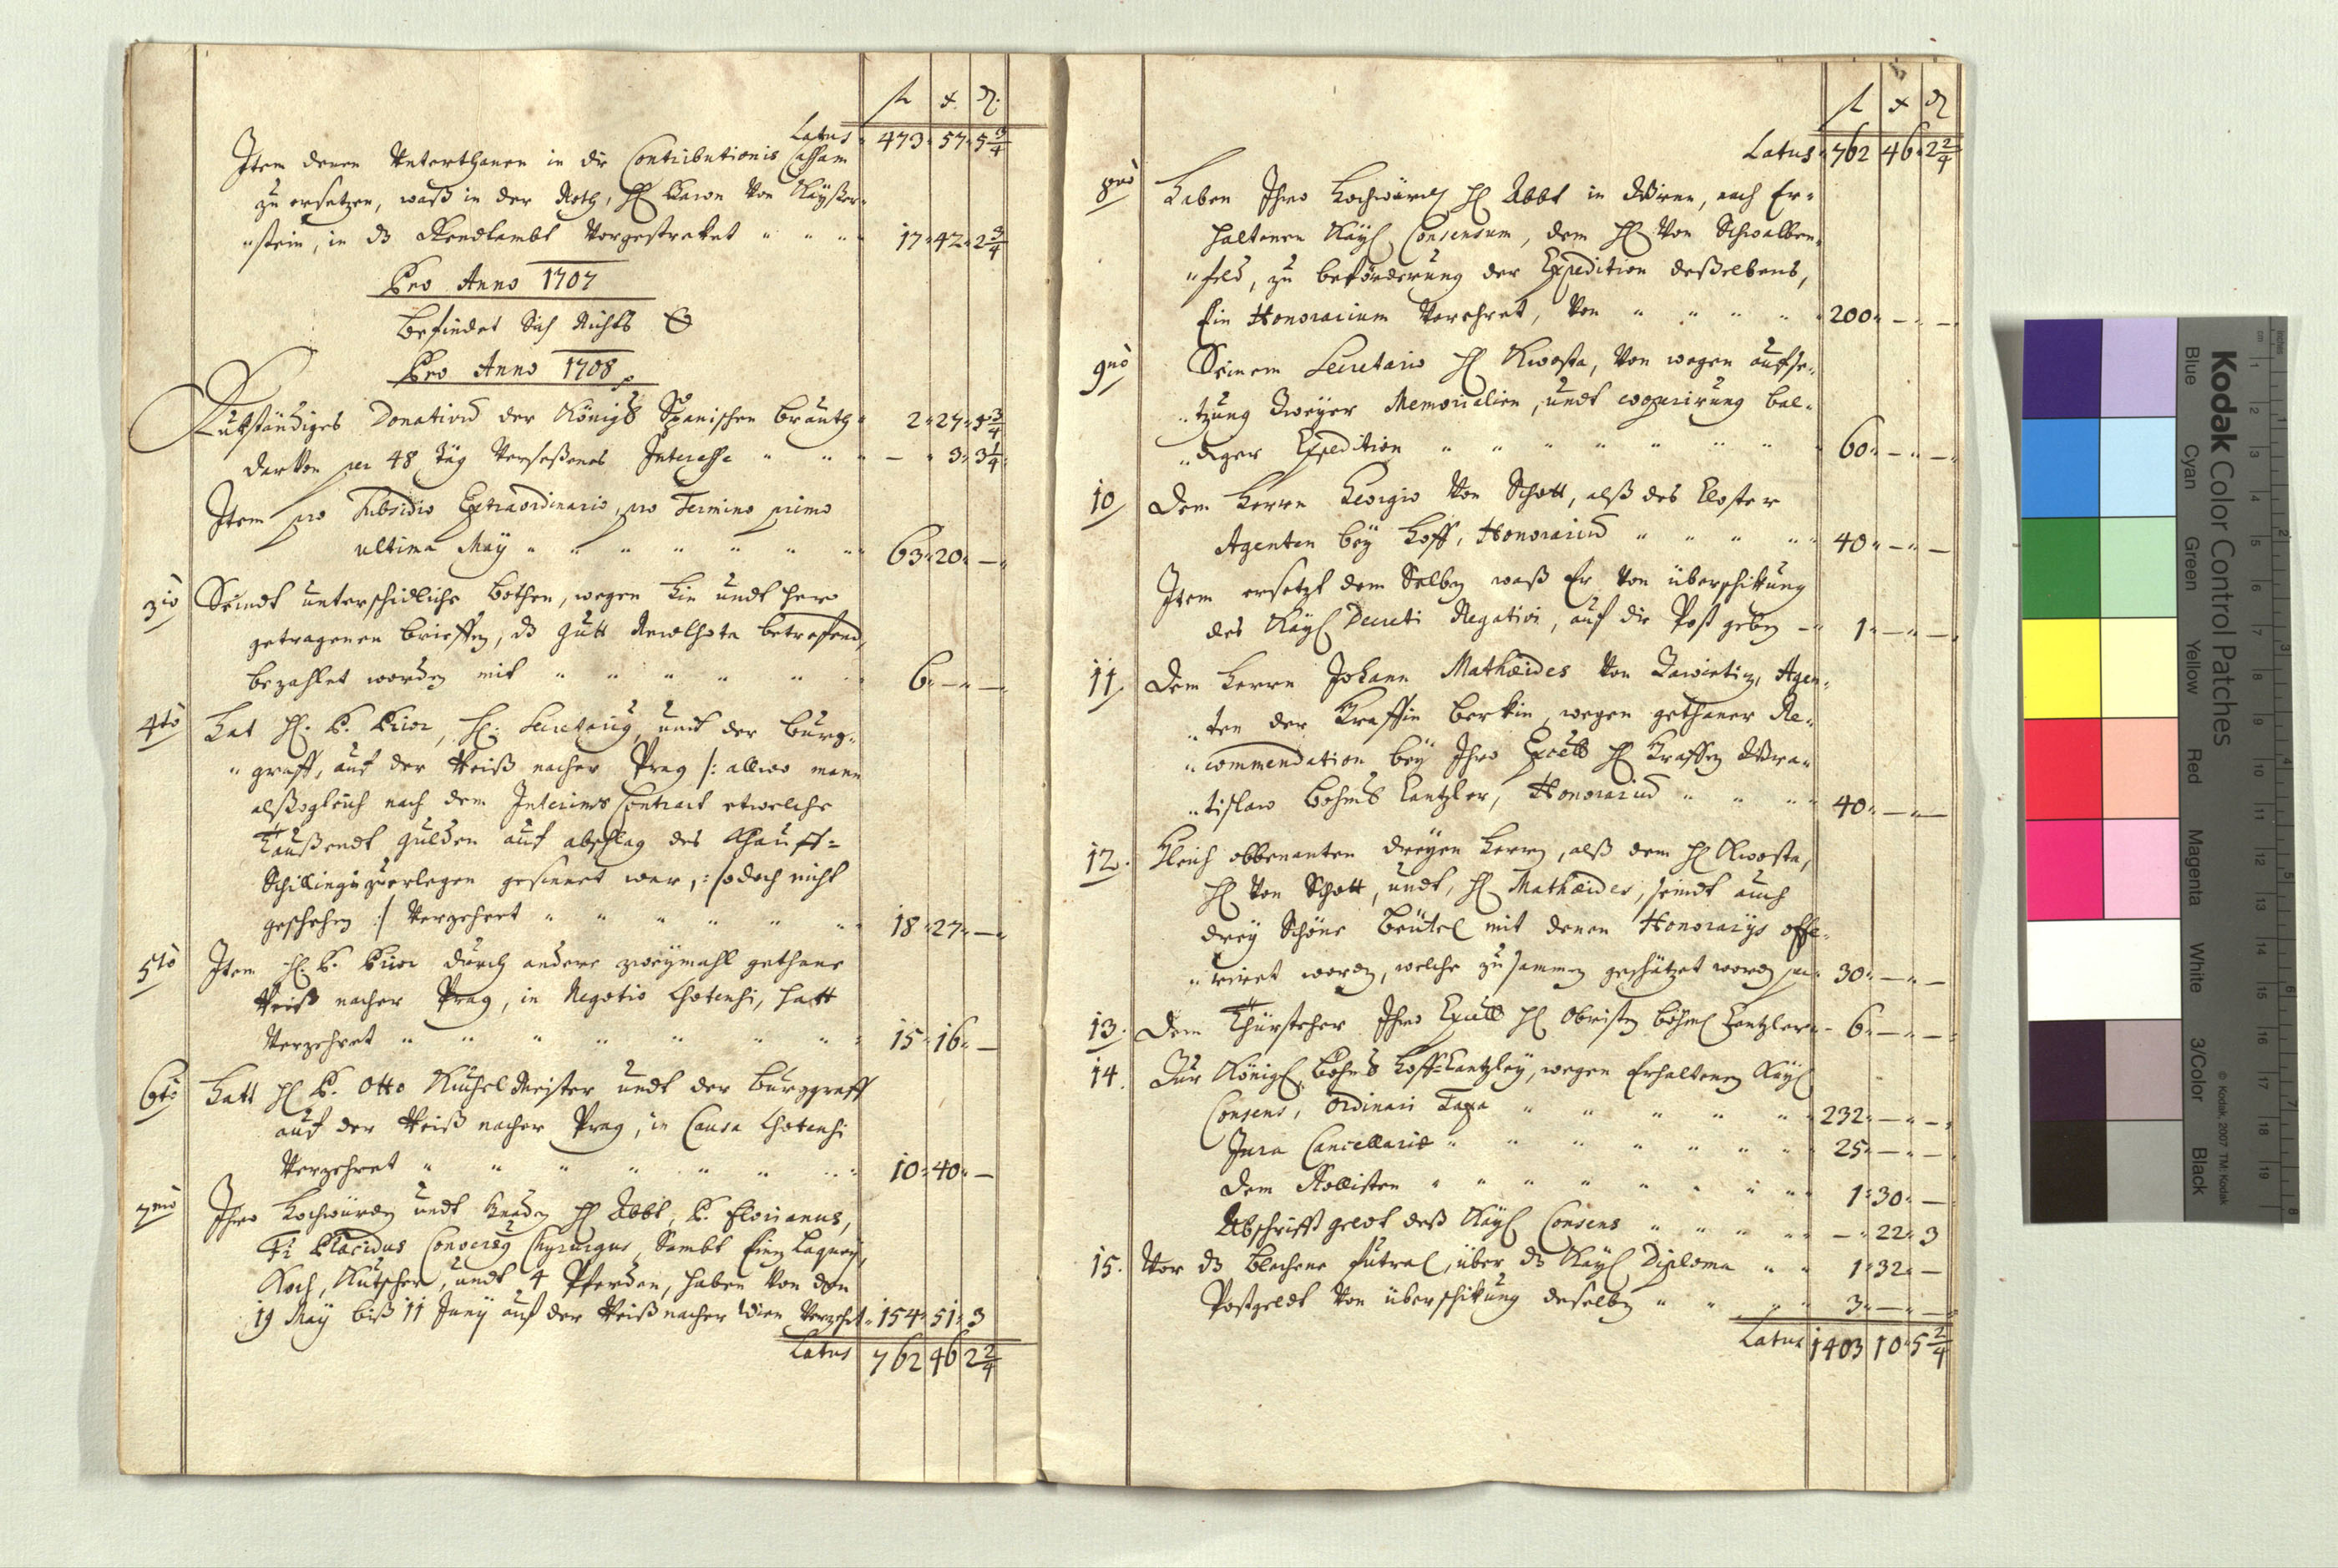 fl x ₰.
Latus 473 57 5 3/4
Item denen Unterthanen in die Contributionis Cassam
zu ersetzen, waß in der Noth, H Baron Von Kaÿser„
„stein, in dß Rendtambt Vorgestreket 17 42 2 3/4
Pro Anno 1707
Befindet Sich Nichts
Pro Anno 1708
Rukständiges Donativum der Königl Spanischen Brauth 2 27
darVon per 48 Täg Verseßenes Interesse — 3 3 1/4
Item pro Subsidio Extraordinario, pro Termino primo
ultima Maÿ 63 20 —
3io Seindt unterschidliche Bothen, wegen hin undt hero
getragenen brieffen, dß gutt betrefend,
bezahlet worden mit 6 — —
4to Hat H. P. Prior, H: Secretarius, undt der Burg„
„graff, auf der Reiß nacher Prag /: allwo mann
alßogleich nach dem Interims Contract etwelche
Taußendt gulden auf abschlag des Khauff=
Schillings zuerlegen gesinnet war, : jedoch nicht
geschehen :/ Verzehret 18 27 —
5to Item H. P. Prior durch andere zweÿmahl gethane
Reiß nacher Prag, in Negotio Chotensi, hatt
Verzehret 15 16 —
6to Hatt H P. Otto Kuchelmeister undt der Burggraff
auf der Reiß nacher Prag, in Causa Chotensi
Verzehret 10 40 —
7mo Ihro Hochwürden undt Gnaden H Abbt, P. Florianus,
Fr Placidus Conversus Chyrurgus, Sambt Einen Laqueÿ,
Koch, Kutscher, undt 4 Pferden, haben Von den
19 Maÿ biß 11 Junÿ auf der Reiß nacher Wien Verzehrt 154 51 3
Latus 762 46 2 2/4
fl x ₰
Latus 762 46 2 2/4
8vo Haben Ihro Hochwürden H Abbt in Wienn, nach Er„
haltenen Kaÿl Consensum, dem H Von Schwalben„
„feld, zu beförderung der Expedition deßelbens,
Ein Honorarium Verehret, Von 200 — —
9no Seinem Secretario H Kwosta, Von wegen aufse„
„tzung Zweÿer Memorialien, undt cooperirung bal„
„diger Expedition 60 — —
10 Dem Herrn Georgio Von Schott, alß des Closter
Agenten beÿ Hoff, Honorarium 40 — —
Item ersetzt dem Selben waß Er Von überschikung
des Kaÿl Decreti Negativi, auf die Post geben 1 — —
11 Dem Herrn Johann Mathæides Von Agen„
„ten der Graffin wegen gethaner Re„
„commendation beÿ Ihro Excell H Graffen Wra„
„tislaw Böhmb Cantzler, Honorarium 40 — —
12. Gleich obbenanten dreÿen Herrn, alß dem H Kwosta,
H Von Schott, undt, H Mathæides, seindt auch
dreÿ Schöne Beütel mit denen Honorarÿs offe„
„riret worden, welche zusammen geschätzet worden per 30 — —
13. Dem Thürsteher Ihro Excell H Obristen Böhml Cantzlern 6 — —
14. Zur Königl Böhmb Hoff=Cantzleÿ, wegen Erhaltenen Kaÿl
Consens, Ordinari Taxa 232 — —
Jura Cancellariæ 25 — —
Dem Kollisten 1 30 —
Abschrifft geldt deß Kaÿl Consens — 22 3
15. Vor dß blechene futral, über dß Kaÿl Diploma 1 32 —
Postgeldt Von überschikung deselben 3 — —
Latus 1403 10 5 2/4
Kodak Color Control Patches
Blue Cyan Green Yellow Red Magenta White 3/Color Black
© Kodak, 2007 TM: Kodak